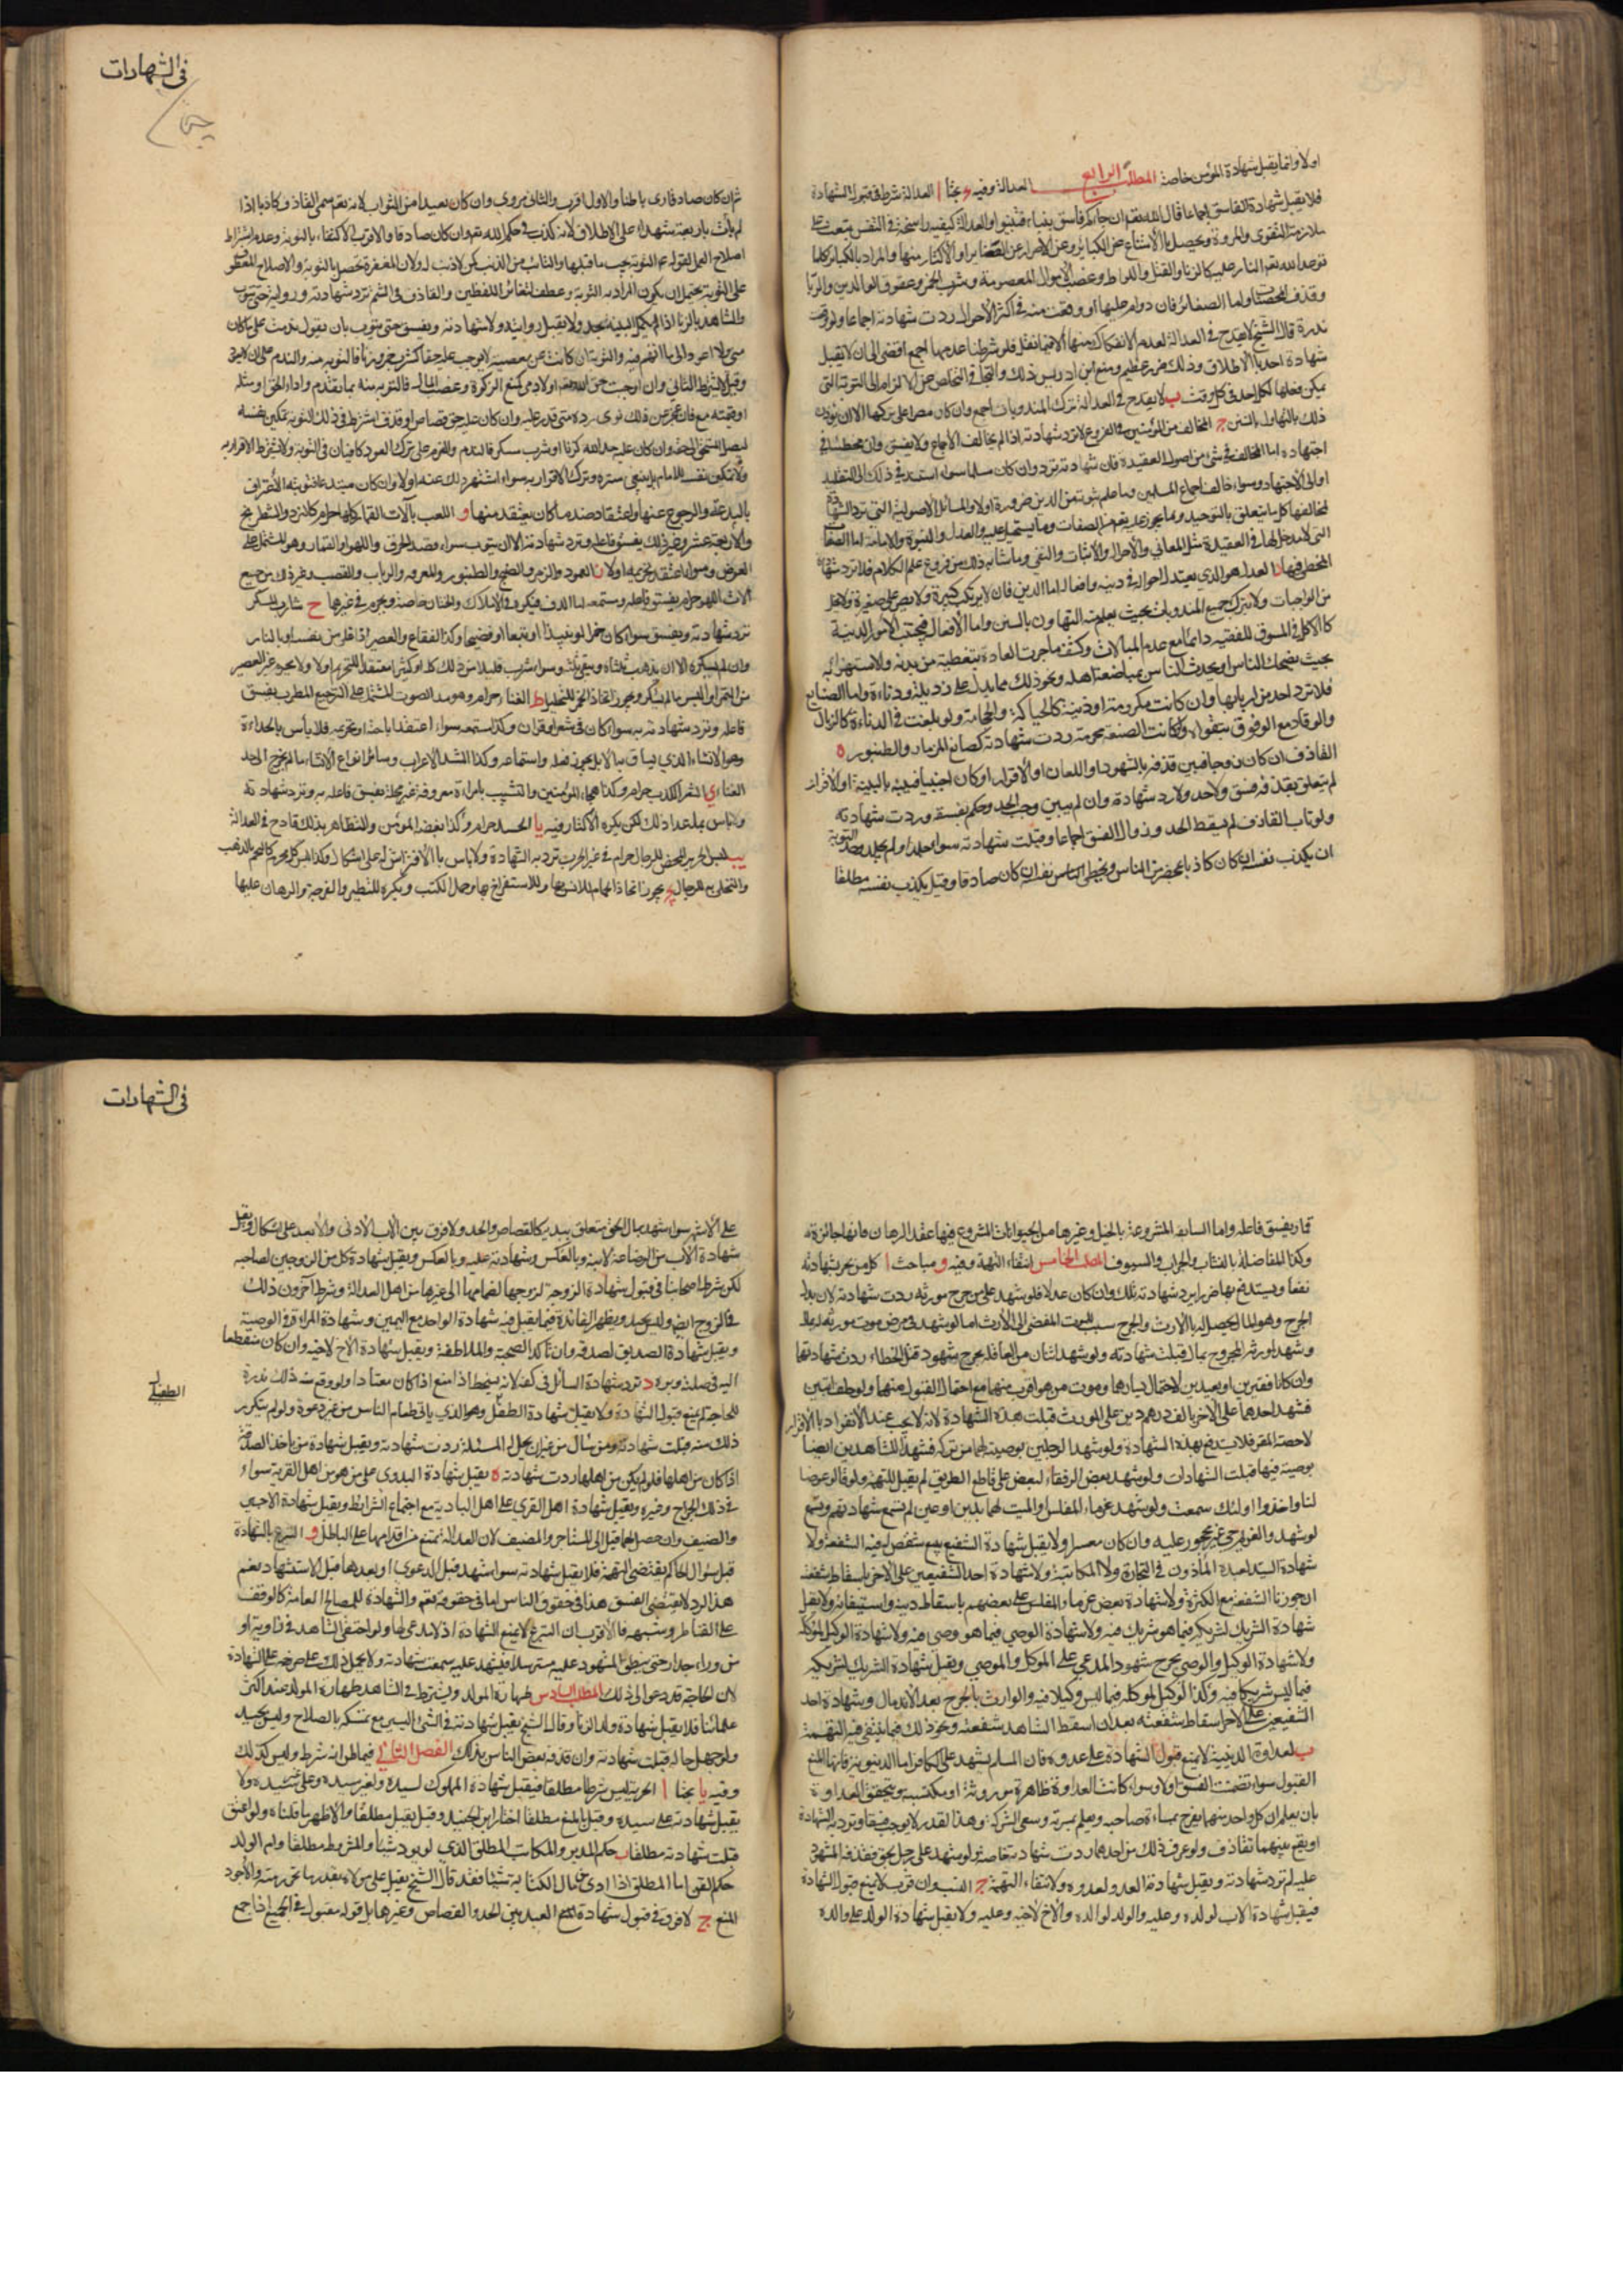 اولا وانما يقبل شهادة المؤمن خاصة المطلب الرابع العدالة وفيه بحثا ا العدالة شرط في قبول الشهادة
فلا يقبل شهادة الفاسق اجماعا قال الله تعم ان جاءكم فاسق بنباء فتبينوا والعدالة كيفية راسخة في النفس تبعث على
ملازمة التقوى والمروة وتحصل بالامتناع عن الكبائر وعن الاصرار على الصغاير او الاكثار منها والمراد بالكبائر كلما
توعد الله تعم النار عليه كالزنا والقتل واللواط وغصب الاموال المعصومة وشرب الخمر وعقوق الوالدين والربا
وقذف المحصنات واما الصغائر فان دوام عليها او وقعت منه في اكثر الاحوال ردت شهادته اجماعا ولو وقعت
ندرة قال الشيخ لا يقدح في العدالة لعدم الانفكاك منها الا فيما تقل فلو شرطنا عدمها اجمع افضى الى ان لا تقبل
شهادة احد بالاطلاق وذلك ضرر عظيم ومنع ابن ادريس ذلك والتجا في التخلص عن الالزام الى التوبة التي
يمكن فعلها لكل احد في كل وقت ب لا يقدح في العدالة ترك المندوبات اجمع وان كان مصرا على تركها الا ان يؤذن
ذلك بالتهاون بالسنن ج المخالف من المؤمنين في الفروع لا ترد شهادته اذا لم يخالف الاجماع ولا يفسق وان مخطئا في
اجتهاده اما المخالف في شئ من اصول العقيدة فان شهادته ترد وان كان مسلما سواء استند في ذلك الى التقليد
او الى الاجتهاد وسواء خالف اجماع المسلمين وما علم ثبوته من الدين ضرورة اولا والمسائل الاصولية التي ترد الشهادة
لمخالفها كل ما يتعلق بالتوحيد وما يجوز عليه تعم من الصفات وما يستحيل عليه والعدل والنبوة والامامة اما الصفات
التي لا مدخل لها في العقيدة مثل المعاني والاحوال والاثبات والنفي وما شابه ذلك من فروع علم الكلام فلا ترد شهادة
المخطى فيها د العدل هو الذى يعتدل احواله في دينه وافعاله اما الدين فان لا يرتكب كبيرة ولا يصر على صغيرة ولا يخل
من الواجبات ولا يترك جميع المندوبات بحيث يعلم منه التهاون بالسنن واما الافعال فيجتنب الامور الدنية
كالاكل في السوق للفقيه دائما مع عدم المبالات وكشف ما جرت العادة بتغطيته من بدنه والاستهزاء
بحيث يضحك الناس او يحدث الناس بمباضعة اهله ونحو ذلك مما يدل على رذيلة ودناءة واما الصنايع
فلا ترد احد من اربابها وان كانت مكروهة او دنية كالحياكة والحجامة ولو بلغت في الدناءة كالزبال
والوقاد مع الوثوق بتقواه ولو كانت الصنعة محرمة ردت شهادته كصانع المزمار والطنبور ه
القاذف ان كان زوجا فبين قذفه بالشهود واللعان او الاقرار او كان اجنبيا فبينه بالبينة او الاقرار
لم يتعلق بقذفه فسق ولا حد ولا رد شهادة وان لم يبين وجب الحد وحكم بفسقه وردت شهادته
ولو تاب القاذف لم يسقط الحد وزوال الفسق اجماعا وقبلت شهادته سواء جلد او لم يجلد وحد التوبة
ان يكذب نفسه ان كان كاذبا بمحضر من الناس ويخطى الناس نفسه ان كان صادقا وقيل يكذب نفسه مطلقا
في الشهادات
ثم ان كان صادقا ورى باطنا والاول اقرب والثاني مروي وان كان بعيدا من الثواب لانه تعم سمى القاذف كاذبا اذا
لم يأت باربعة شهداء على الاطلاق لانه كذب في حكم الله تعم وان كان صادقا والاقرب الاكتفاء بالتوبة وعدم اشتراط
اصلاح العمل لقوله ع التوبة تجب ما قبلها والتائب من الذنب كمن لا ذنب له ولان المغفرة تحصل بالتوبة والاصلاح المعطوف
على التوبة يحتمل ان يكون المراد به التوبة وعطف لتغائر اللفظين والقاذف في الشتم ترد شهادته وروايته حتى يتوب
والشاهد بالزنا اذا لم يكمل البينة يحد ولا تقبل روايته ولا شهادته ويفسق حتى يتوب بان يقول ندمت على ما كان
منى ولا اعود الى ما اتهم فيه والتوبة ان كانت عن معصية لا توجب عليه حقا كشرب خمر وزنا فالتوبة منه والندم على ان لا يعود
وقيل لا يشترط الثاني وان اوجبت حق الله تعم او لادمى كمنع الزكوة وغصب المال فالتوبة منه بما تقدم واداء الحق او مثله
او قيمته مع فان عجز عن ذلك نوى رده متى قدر عليه وان كان عليه حق قصاص او قذف اشترط في ذلك التوبة تمكين نفسه
لمستحق الحق وان كان عليه حد لله كزنا او شرب مسكر فالندم والعزم على ترك العود كافيان في التوبة ولا يشترط الاقرار به
ولا تمكين نفسه للامام بل ينبغي ستره وترك الاقرار به سواء اشتهر ذلك عنه اولا وان كان مبتدعا فتوبته الاعتراف
بالبدعة والرجوع عنها واعتقاد ضد ما كان يعتقد منها و اللعب بآلات القمار كلها حرام كالنرد والشطرنج
والاربعة عشر وغير ذلك يفسق فاعله وترد شهادته الا ان يتوب سواء قصد الحذق واللهو او القمار وهو المشتمل على
العوض وسواء اعتقد تحريمه اولا ز العود والزمر والصنج والطنبور والمعزفة والرباب والقصب وغير ذلك من جميع
آلات اللهو حرام يفسق فاعله ومستمعه اما الدف فيكره في الاملاك والختان خاصة ويحرم في غيرها ح شارب المسكر
ترد شهادته ويفسق سواء كان خمرا او نبيذا او بتعا او فضيخا وكذا الفقاع والعصير اذا غلى من نفسه او بالنار
وان لم يسكر الا ان يذهب ثلثاه ويبقى ثلثه وسواء شرب قليلا من ذلك كله او كثيرا معتقدا للتحريم اولا ولا يحرم غير العصير
من التمر او البسر ما لم يسكر ويجوز اتخاذ الخمر للتخليل ط الغناء حرام وهو مد الصوت المشتمل على الترجيع المطرب يفسق
فاعله وترد شهادته به سواء كان في شعر او قران وكذا مستمعه سواء اعتقد اباحته او تحريمه فلا بأس بالحداء
وهو الانشاء الذي يساق به الابل يجوز فعله واستماعه وكذا نشيد الاعراب وسائر انواع الانشاء ما لم يخرج الى حد
الغناء ي الشعر الكذب حرام وكذا هجاء المؤمنين والتشبيب بامرأة معروفة غير محللة يفسق فاعله به وترد شهادته
ولا باس بما عدا ذلك لكن يكره الاكثار فيه يا الحسد حرام وكذا بغض المؤمن والتظاهر بذلك قادح في العدالة
يب لبس الحرير المحض للرجال حرام في غير الحرب ترد به الشهادة ولا باس بالافتراش له على اشكال وكذا لبس كل محرم كالتختم بالذهب
والتحلى به للرجال يج يجوز اتخاذ الحمام للانس بها وللاستفراخ بها وحمل الكتب ويكره للتطير والفرجة والرهان عليها
في الشهادات
قمار يفسق فاعله واما السابقة المشروعة بالخيل وغيرها من الحيوانات المشروع فيها عقد الرهان فانها جائزة
وكذا المفاضلة بالنشاب والحراب والسيوف المطلب الخامس انتفاء التهمة وفيه و مباحث ا كل من يجر بشهادته
نفعا ويستدفع بها ضررا يرد شهادته تلك وان كان عدلا فلو شهد على من جرح مورثه ردت شهادته لان بدل
الجرح وهو المال يحصل له بالارث والجرح سبب للموت المفضى الى الارث اما لو شهد في مرض موت مورثه له بمال
وشهد لمورثه المجروح بمال قبلت شهادته ولو شهد اثنان من العاقلة بجرح شهود قتل الخطاء ردت شهادتهما
وان كانا فقيرين او بعيدين لاحتمال يسارهما وموت من هو اقرب منهما مع احتمال القبول منهما ولو خلف ابنين
فشهد احدهما على الاخر بالف درهم دين على المورث قبلت هذه الشهادة لانه لا يجب عند الانفراد بالاقرار
لا حصة المقر فلا يدفع بهذه الشهادة ولو شهدا لرجلين بوصية لهما من تركه فشهد الشاهدين ايضا
بوصية فيها قبلت الشهادات ولو شهد بعض الرفقاء لبعض على قاطع الطريق لم يقبل للتهمة ولو قالوا عرضوا
لنا واخذوا اولئك سمعت ولو شهد غرماء المفلس او الميت لهما بدين او عين لم تسمع شهادتهم وتسمع
لو شهد والغريم حي غير محجور عليه وان كان معسرا ولا يقبل شهادة الشفيع ببيع شقص له فيه الشفعة ولا
شهادة السيد لعبده المأذون في التجارة ولا المكاتبة ولا شهادة احد الشفيعين على الاخر باسقاط شفعته
ان جوزنا الشفعة مع الكثرة ولا شهادة بعض غرماء المفلس على بعضهم باسقاط دينه واستيفائه ولا تقبل
شهادة الشريك لشريكه فيما هو شريك فيه ولا شهادة الوصي فيما هو وصى فيه ولا شهادة الوكيل لموكله
ولا شهادة الوكيل والوصي بجرح شهود المدعي على الموكل والموصي ويقبل شهادة الشريك لشريكه
فيما ليس شريكا فيه وكذا الوكيل لموكله فيما ليس وكيلا فيه والوارث بالجرح بعد الاندمال وشهادة احد
الشفيعين على الاخر اسقاط شفعته بعد ان اسقط الشاهد شفعته ونحو ذلك فيما ينتفى فيه التهمة
ب العداوة الدينية لا تمنع قبول الشهادة على عدوه فان المسلم يشهد على الكافر اما الدنيوية فانها تمنع
القبول سواء تضمنت الفسق اولا وسواء كانت العداوة ظاهرة موروثة او مكتسبة ويتحقق العداوة
بان يعلم ان كل واحد منهما يفرح بمساءة صاحبه ويغتم بمسرته وسعى الشر له وهذا القدر لا يوجب فسقا وترد به الشهادة
او يقع بينهما تقاذف ولو عرف ذلك من احدهما ردت شهادته خاصة ولو شهد على رجل بحق فقذفه المشهود
عليه لم ترد شهادته ويقبل شهادة العدو لعدوه ولانتفاء التهمة ج النسب وان قرب لا يمنع قبول الشهادة
فيقبل شهادة الاب لولده وعليه والولد لوالده والاخ لاخيه وعليه ولا يقبل شهادة الولد على والده
على الاشهر سواء شهد بمال او بحق متعلق ببدنه كالقصاص والحد ولا فرق بين الاب الادنى والابعد على اشكال ويقبل
شهادة الاب من الرضاعة لابنه وبالعكس وشهادته عليه وبالعكس ويقبل شهادة كل من الزوجين لصاحبه
لكن شرط اصحابنا في قبول شهادة الزوجة لزوجها انضمامها الى غيرها من اهل العدالة وشرط آخرون ذلك
في الزوج ايضا وليس بجيد ويظهر الفائدة فيما يقبل فيه شهادة الواحد مع اليمين وشهادة المراة في الوصية
ويقبل شهادة الصديق لصديقه وان تأكد الصحبة والملاطفة ويقبل شهادة الاخ لاخيه وان كان منقطعا
اليه في صلته وبره د ترد شهادة السائل في كفه لانه يسخط اذا منع اذا كان معتادا ولو وقع منه ذلك ندرة
للحاجة لم يمنع قبول الشهادة ولا يقبل شهادة الطفيلى وهو الذي ياتى طعام الناس من غير دعوة ولو لم يتكرر
الطفيلى
ذلك منه قبلت شهادته ومن سال من غير ان يحل له المسئلة ردت شهادته ويقبل شهادة من ياخذ الصدقة
اذا كان من اهلها فلو لم يكن من اهلها ردت شهادته ه يقبل شهادة البدوى على من هو من اهل القرية سواء
في ذلك الجراح وغيره ويقبل شهادة اهل القرى على اهل البادية مع اجتماع الشرائط ويقبل شهادة الاجير
والضيف وان حصل لهما قبل الى المستاجر والمضيف لان العدالة تمنع من اقدامها على الباطل و التبرع بالشهادة
قبل سوال الحاكم يقتضى التهمة فلا يقبل شهادته سواء شهد قبل الدعوى او بعدها قبل الاستشهاد نعم
هذا الرد لا يقتضى الفسق هذا في حقوق الناس اما في حقوقه تعم والشهادة للمصالح العامة كالوقف
على القناطر وشبهه فالاقرب ان التبرع لا يمنع الشهادة اذ لا مدعى لها ولو اختفى الشاهد في زاوية او
من وراء جدار حتى ينطق المشهود عليه مسترسلا فيشهد عليه سمعت شهادته ولا يحمل ذلك على حرصه على الشهادة
لان الحاجة قد تدعو الى ذلك المطلب السادس طهارة المولد ويشترط في الشاهد طهارة المولد عند اكثر
علمائنا فلا يقبل شهادة ولد الزنا وقال الشيخ يقبل شهادته في الشئ اليسير مع تمسكه بالصلاح وليس بجيد
ولو جهل حاله قبلت شهادته وان قذفه بعض الناس بذلك الفصل الثاني فيما ظن انه شرط وليس كذلك
وفيه يا بحثا ا الحرية ليس شرطا مطلقا فيقبل شهادة المملوك لسيده ولغير سيده وعلى غير سيده ولا
يقبل شهادته على سيده وقيل بالمنع مطلقا اختاره ابن الجنيد وقيل يقبل مطلقا والاظهر ما قلناه ولو اعتق
قبلت شهادته مطلقا ب حكم المدبر والمكاتب المطلق الذي لم يؤد شيئا والمشروط مطلقا وام الولد
حكم القن اما المطلق اذا ادى من مال الكتابة شيئا فقد قال الشيخ يقبل على مولاه بقدر ما تحرر منه والاجود
المنع ج لا فرق في قبول شهادة العبد بين الحد والقصاص وغيرها بل قوله مقبول في الجميع اذا جمع